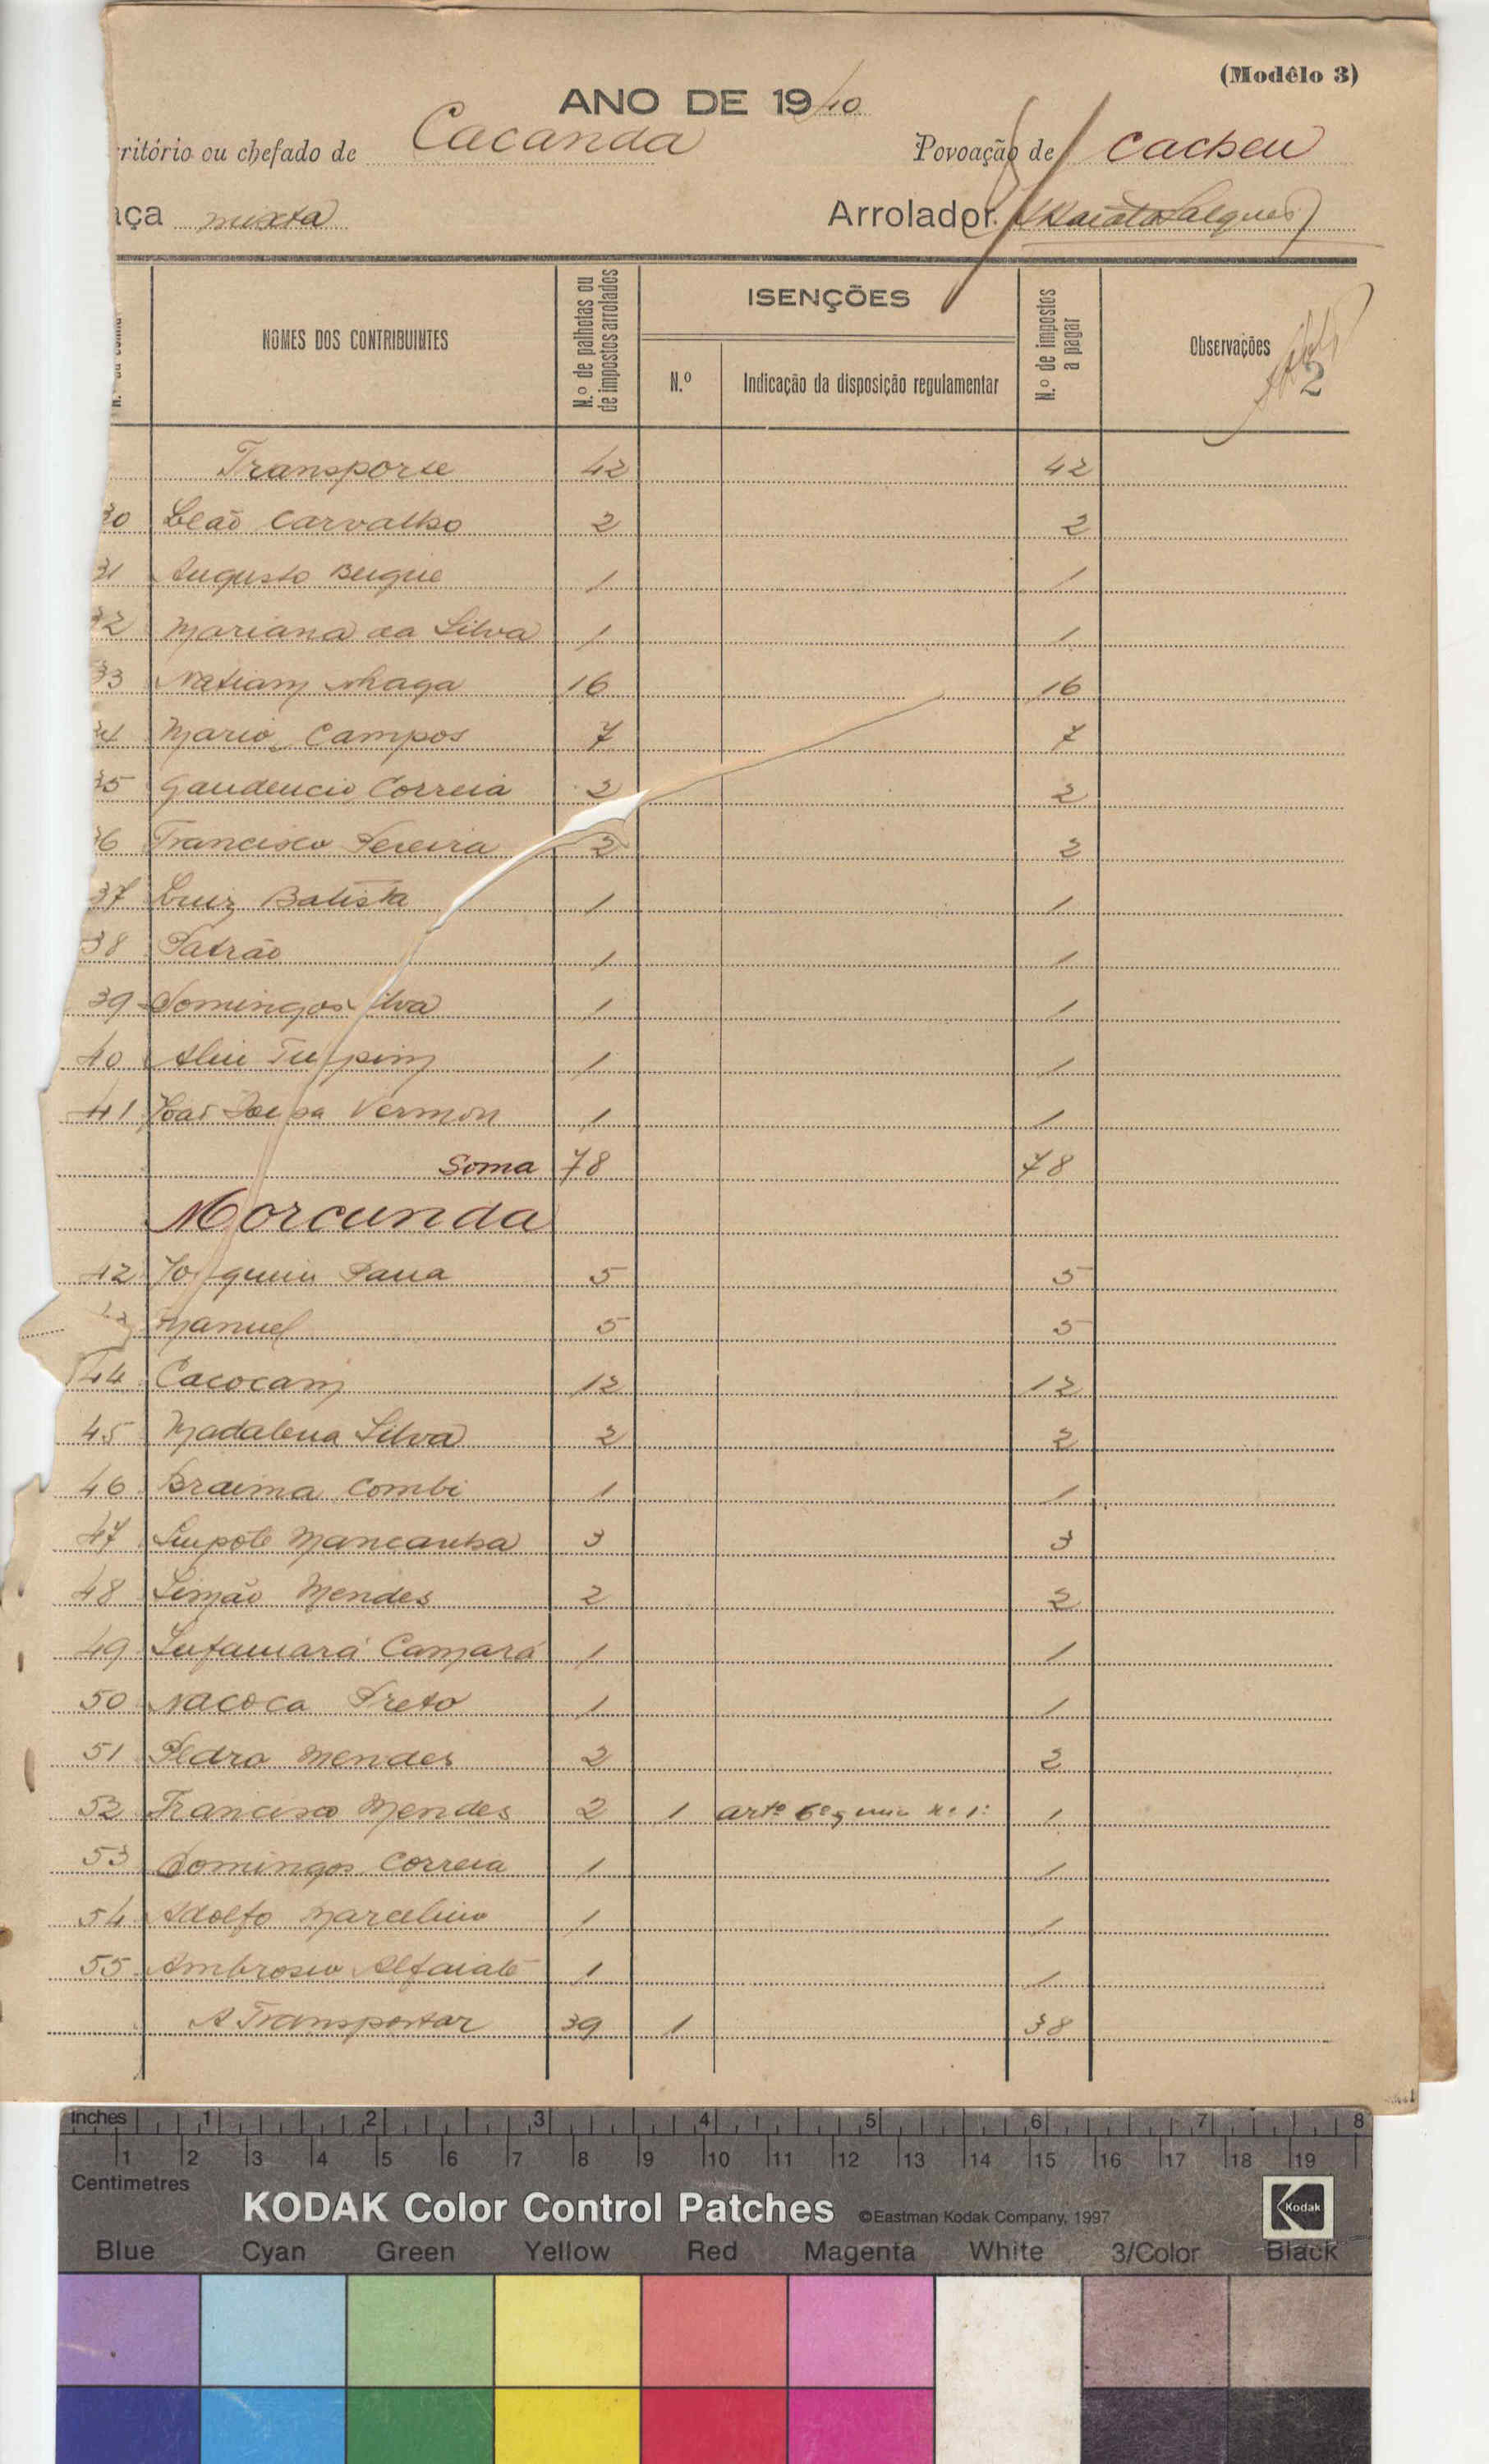 (Modêlo 3)
ANO DE 1940
ritório ou chefado de Cacanda Povoação de Cacheu
aça mixta Arrolador
NOMES DOS CONTRIBUINTES
N.º de palhotas ou de impostos arrolados
ISENÇÕES
N.º
Indicação da disposição regulamentar
N.º de impostos a pagar
Observações
2
Transporte 42 42
30 Leaõ Carvalho 2 2
31 Augusto 1 1
32 Mariana da Silva 1 1
33 16 16
34 Mario Campos 7 7
35 Gaudencio Correia 2 2
36 Francisco Pereira 2 2
37 Luiz Batista 1 1
38 Patrão 1 1
39 Domingos Silva 1 1
40 1 1
41 Vermon 1 1
Soma 78 78
Morcunda
42 Joaquim 5 5
43 Manuel 5 5
44 Cacocam 12 12
45 Madalena Silva 2 2
46 Braima Combi 1 1
47 Mancanha 3 3
48 Simão Mendes 2 2
49 Camará 1 1
50 Nacoca Preto 1 1
51 Pedro Mendes 2 2
52 Francisco Mendes 2 1 artº 6º n.º 1º 1
53 Domingos Correia 1 1
54 Adolfo Marcelino 1 1
55 Ambrosio Alfaiate 1 1
A Transportar 39 1 38
inches 1 2 3 4 5 6 7 8
1 2 3 4 5 6 7 8 9 10 11 12 13 14 15 16 17 18 19
Centimetres
KODAK Color Control Patches ©Eastman Kodak Company, 1997 Kodak
Blue Cyan Green Yellow Red Magenta White 3/Color Black